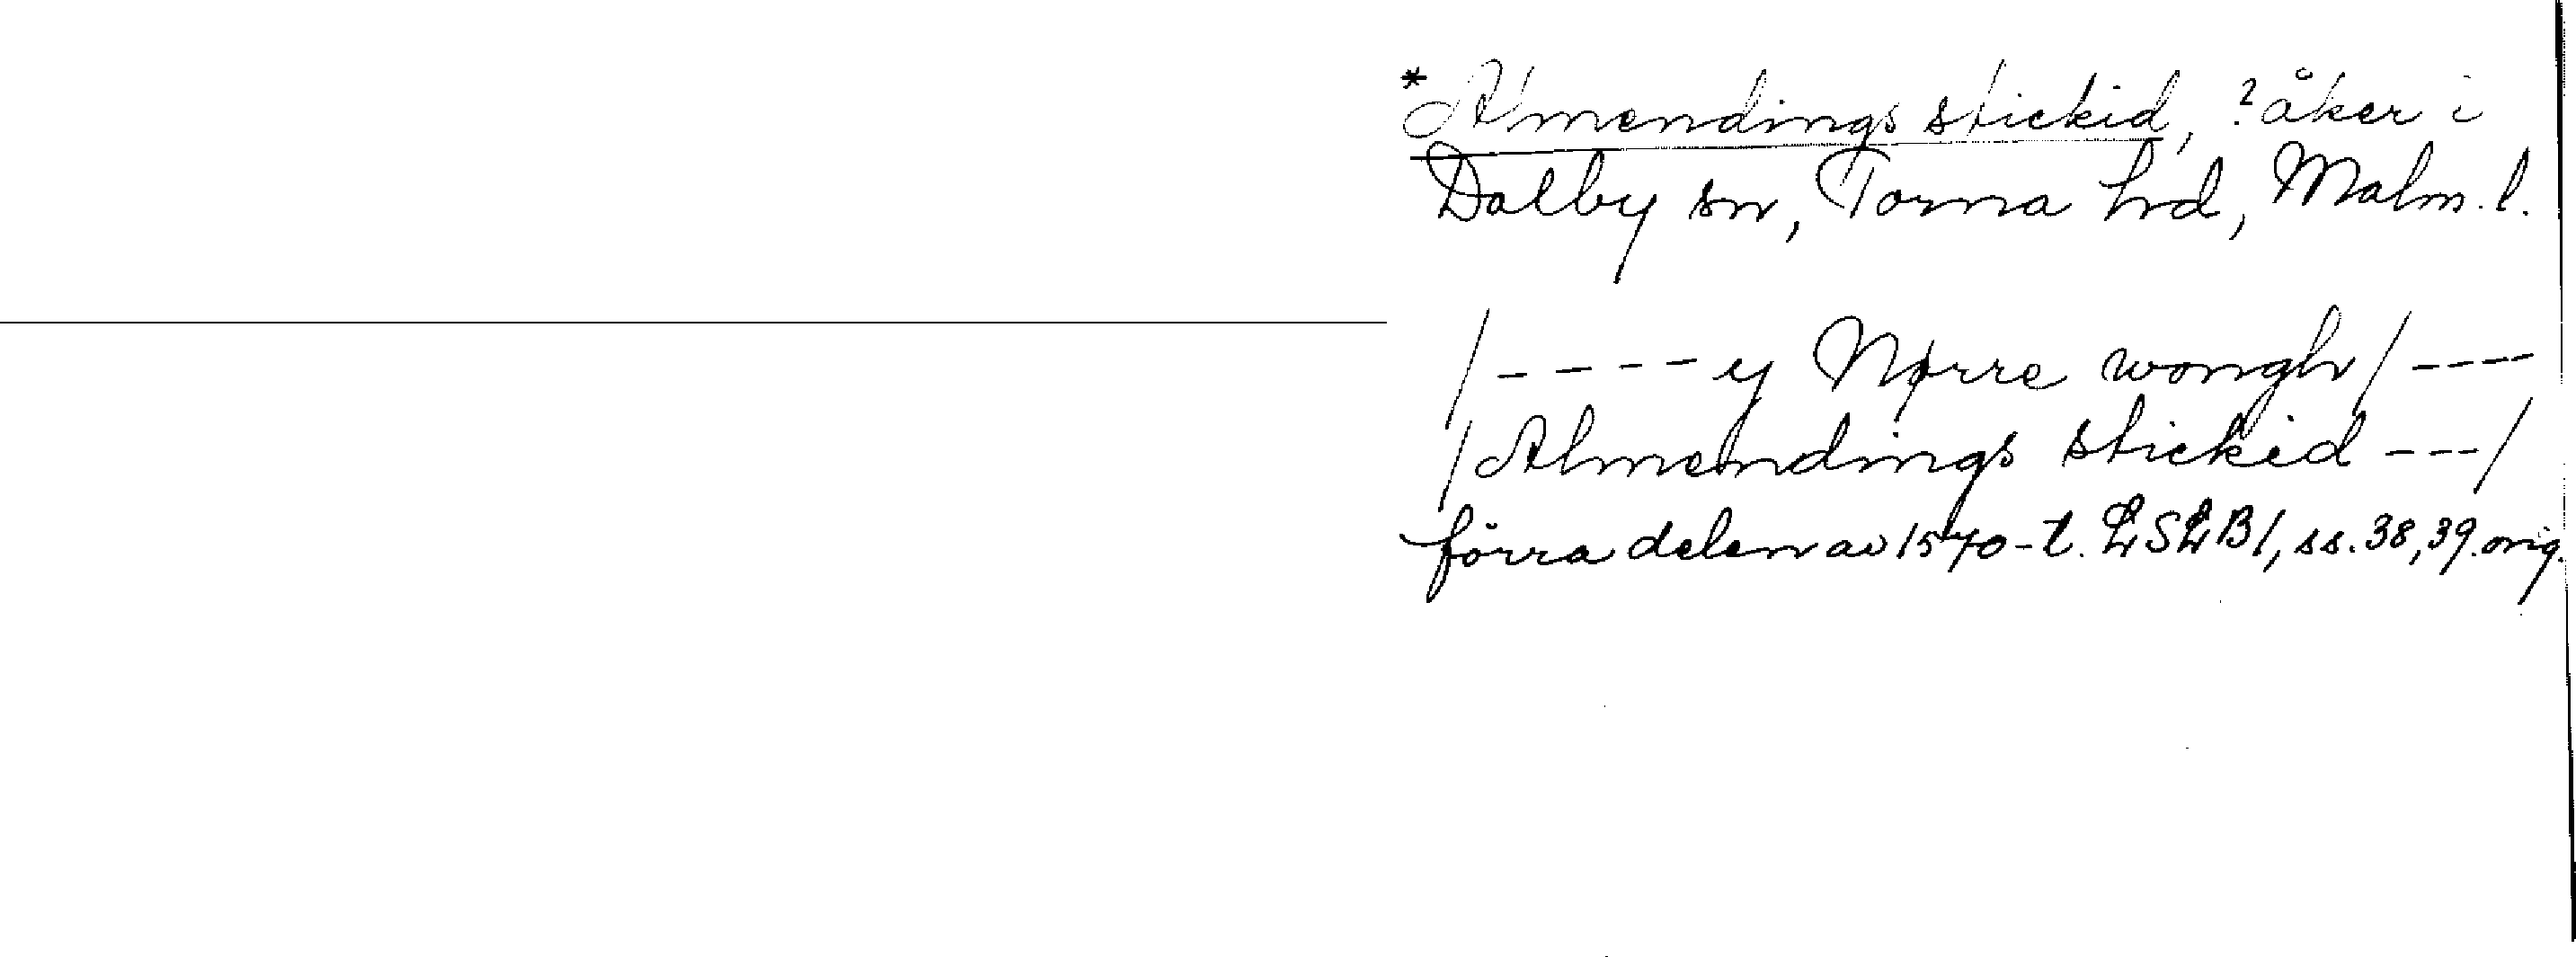 *Almendings stickid, ? åker i
Dalby sn, Torna hd, Malm. l.
/ - - - - y Nørre wongh / - - - -
/ Almendings stickid - - - /
förra delen av 1570-t. LSLB1, ss. 38, 39. orig.